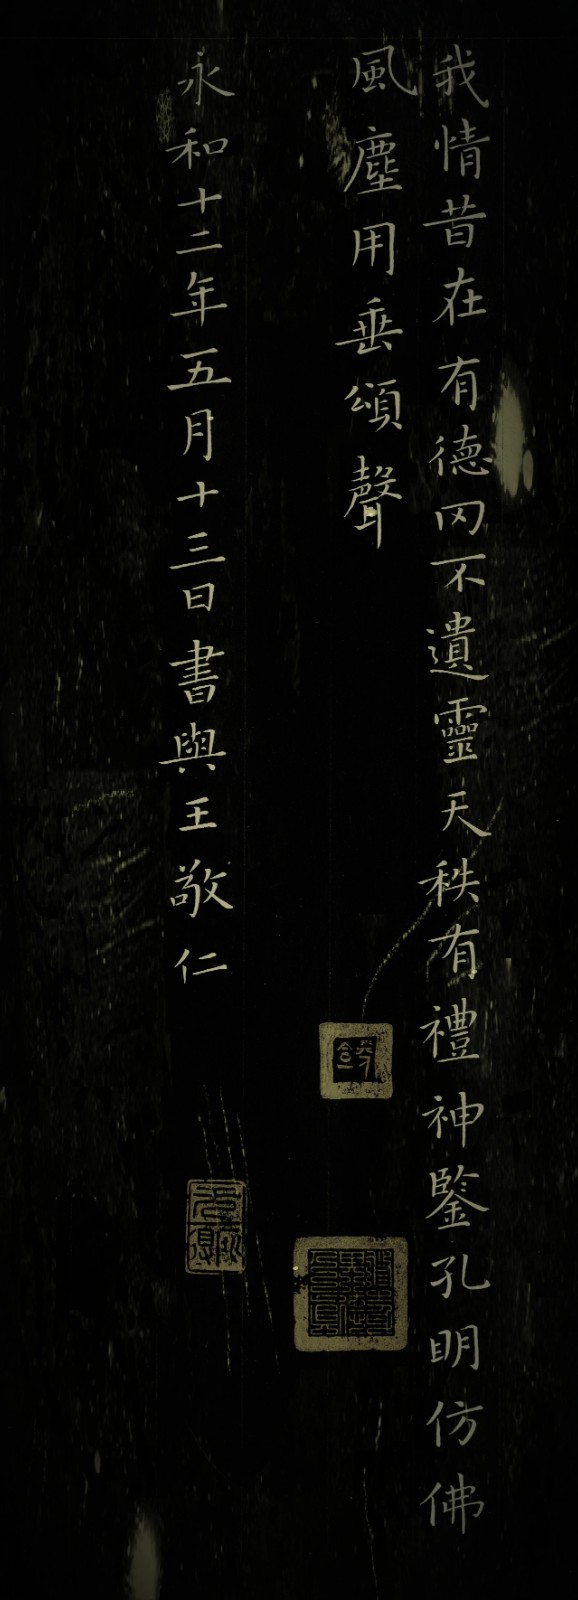 我情昔在有德罔不遺靈天秩有禮神鑒孔明仿佛
風塵用垂頌聲
永和十二年五月十三日書與王敬仁